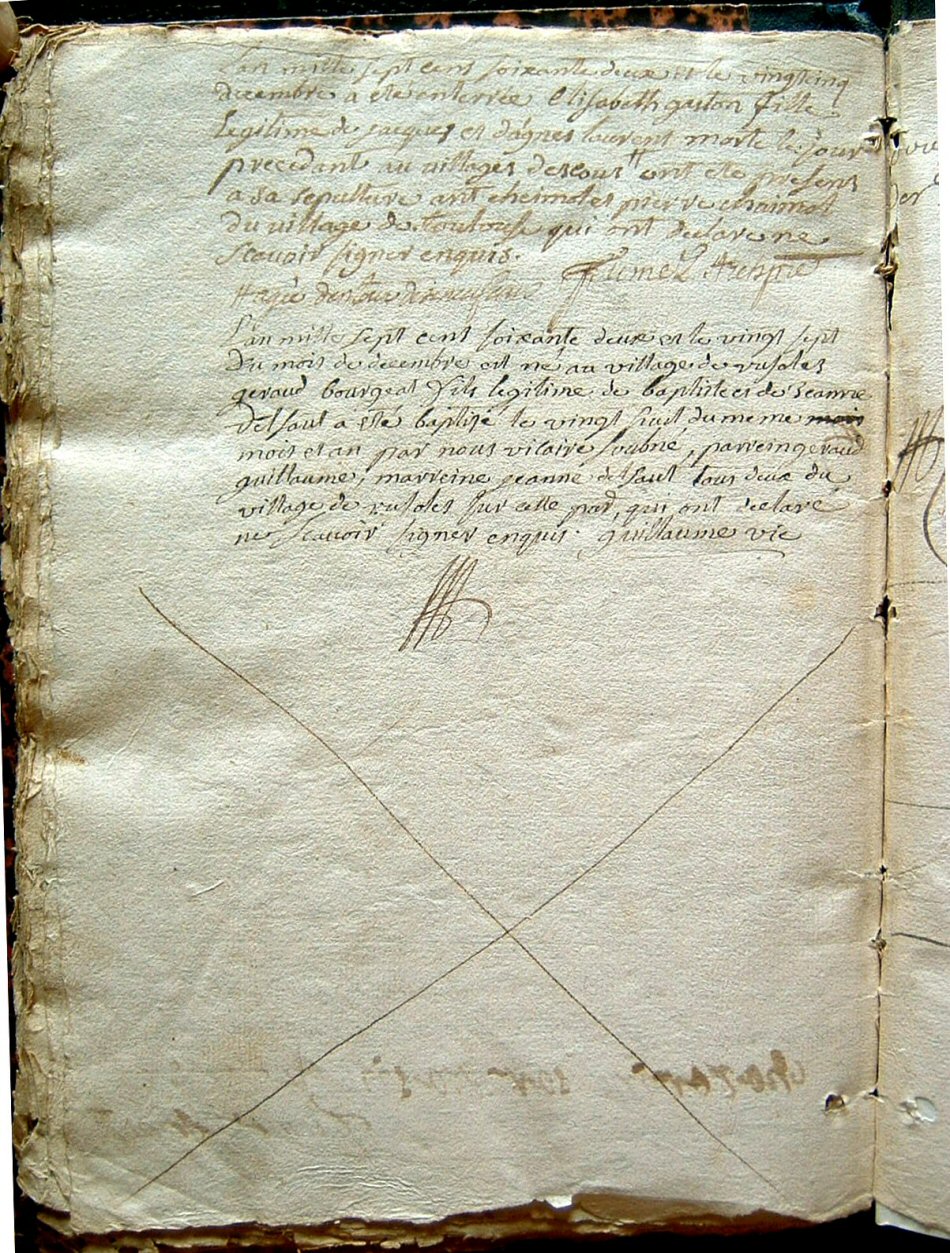 L'an mille sept cent soixante deux et le vingt cinq
decembre a ete enterrée elisabeth gaston fille
legitime de jacques et d'agnes laurent morte le jour
precedant au villages descous ont ete presens
a sa sepulture ant cheimol et pierre cheimol
du village de toulouse qui ont declare ne
scavoir signer enquis.
agée
L'an mille sept cent soixante deux et le vingt sept
du mois de decembre est né au village de rusoles
geraud bourgeat fils legitime de baptiste et de jeanne
delsaut a eté baptisé le vingt huit du meme mois
mois et an par nous vicaire soubné, parrein geraud
guillaume, marreine jeanne delsaut tous deux du
village de rusoles sur cette par, qui ont declaré
ne scavoir signer enquis. guillaume vic